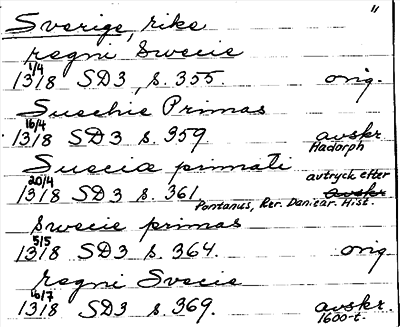 Sverige, rike "
regni Swecie
1/4
1318 SD3, s. 355. orig.
Suechie Primas
16/4
1318 SD3 s. 359 avskr
Hadorph
Sueciæ primati
20/4 avtryck efter
1318 SD3 s. 361 avskr
Pontanus, Rer. Danicar. Hist.
Swecie primas
5/5
1318 SD3 s. 364. orig
regni Svecie
10/7
1318 SD3 s. 369. avskr.
1600-t.